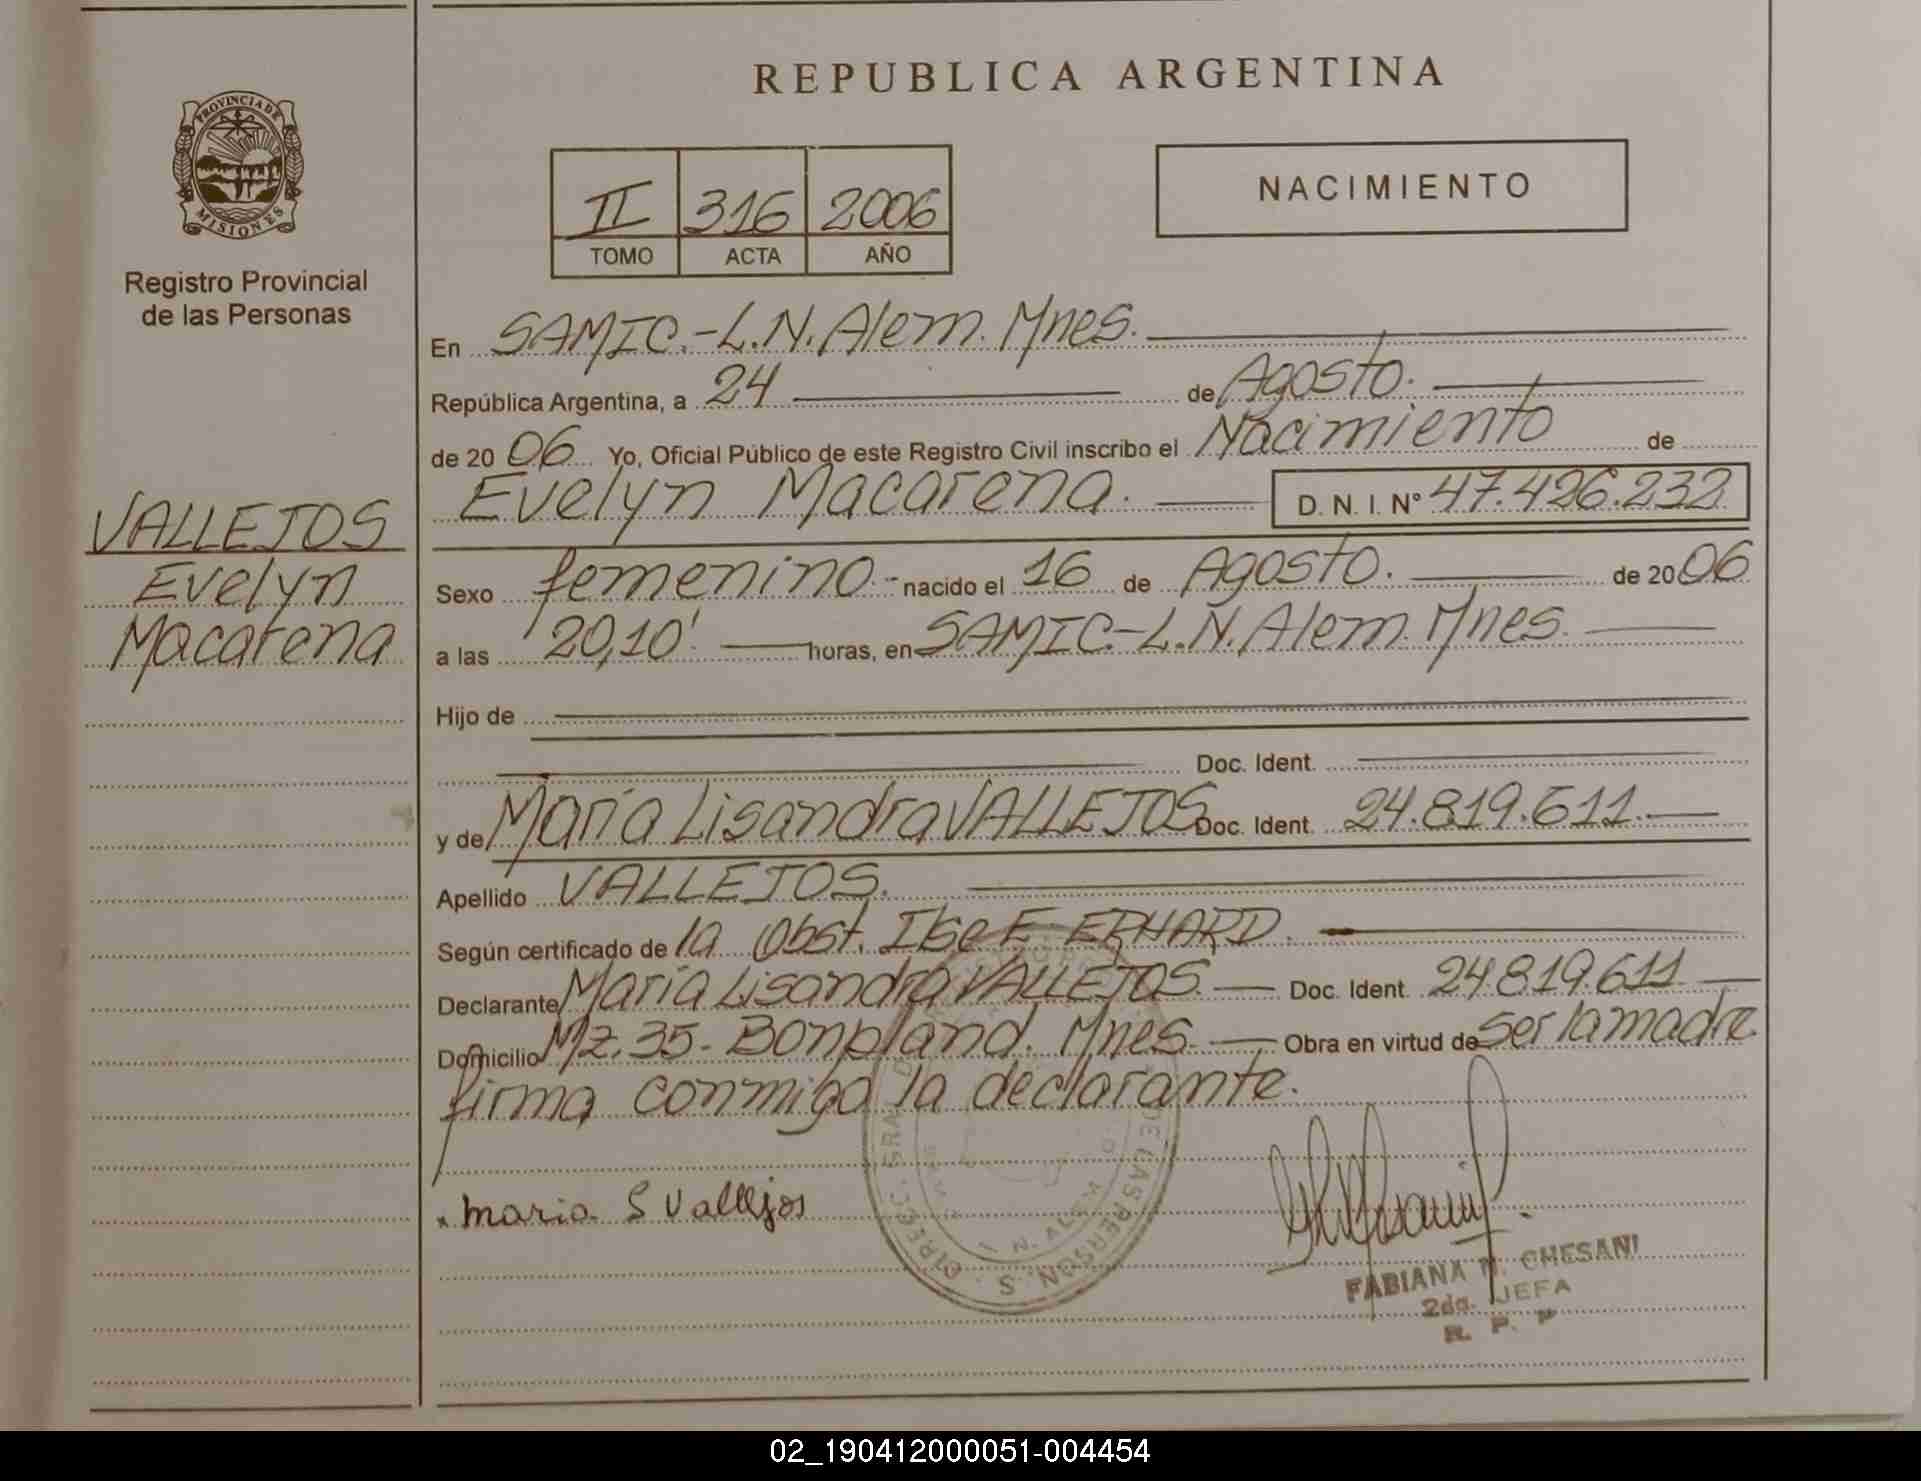 REPUBLICA ARGENTINA
PROVINCIA DE
MISIONES
Registro Provincial
de las Personas
II 316 2006
TOMO ACTA AÑO
NACIMIENTO
VALLEJOS
Evelyn
Macarena
En SAMIC.-L.N.Alem. Mnes.
República Argentina, a 24 de Agosto.
de 2006 Yo, Oficial Público de este Registro Civil inscribo el Nacimiento de
Evelyn Macarena. D. N. I. Nº 47.426.232
Sexo femenino.- nacido el 16 de Agosto. de 2006
a las 20,10'. horas, en SAMIC.-L.N.Alem. Mnes.
Hijo de
Doc. Ident.
y de María Lisandra VALLEJOS Doc. Ident. 24.819.611.
Apellido VALLEJOS.
Según certificado de la Obst. Ilse E. ERHARD.
Declarante María Lisandra VALLEJOS. Doc. Ident. 24.819.611
Domicilio Mz. 35- Bonpland. Mnes. Obra en virtud de ser la madre
firma conmigo la declarante.
maria S Vallejos
DE LAS PERSON S
N. ALEM
FABIANA N. CHESANI
2da. JEFA
R. P. P
02_190412000051-004454